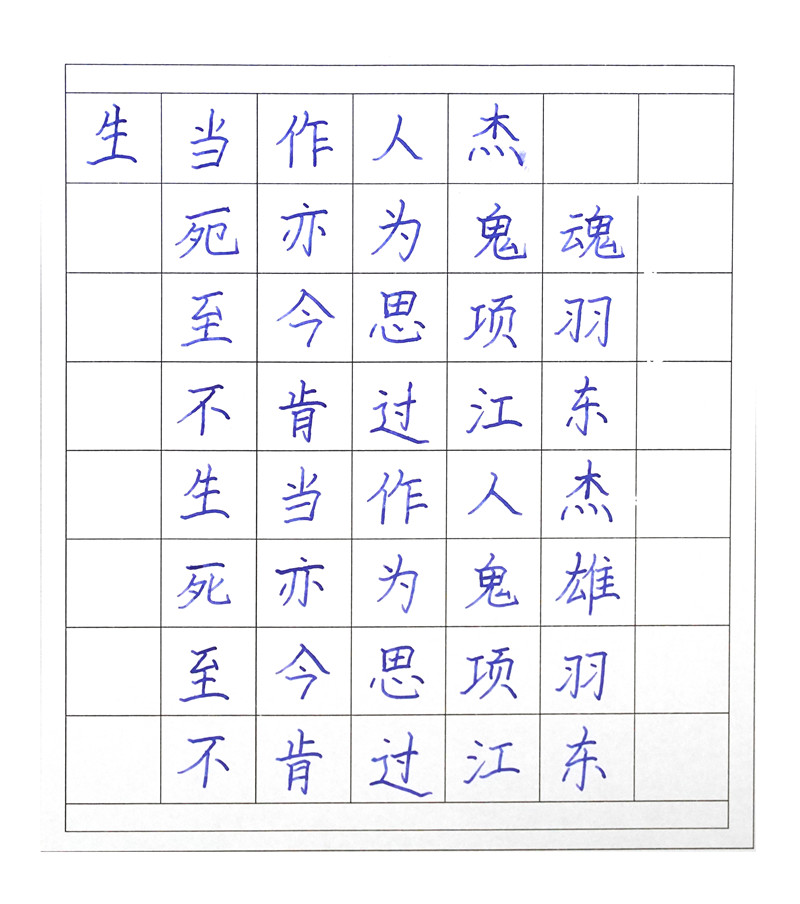 生当作人杰
亦为鬼魂
至今思项羽
不肯过江东
生当作人杰
死亦为鬼雄
至今思项羽
不肯过江东